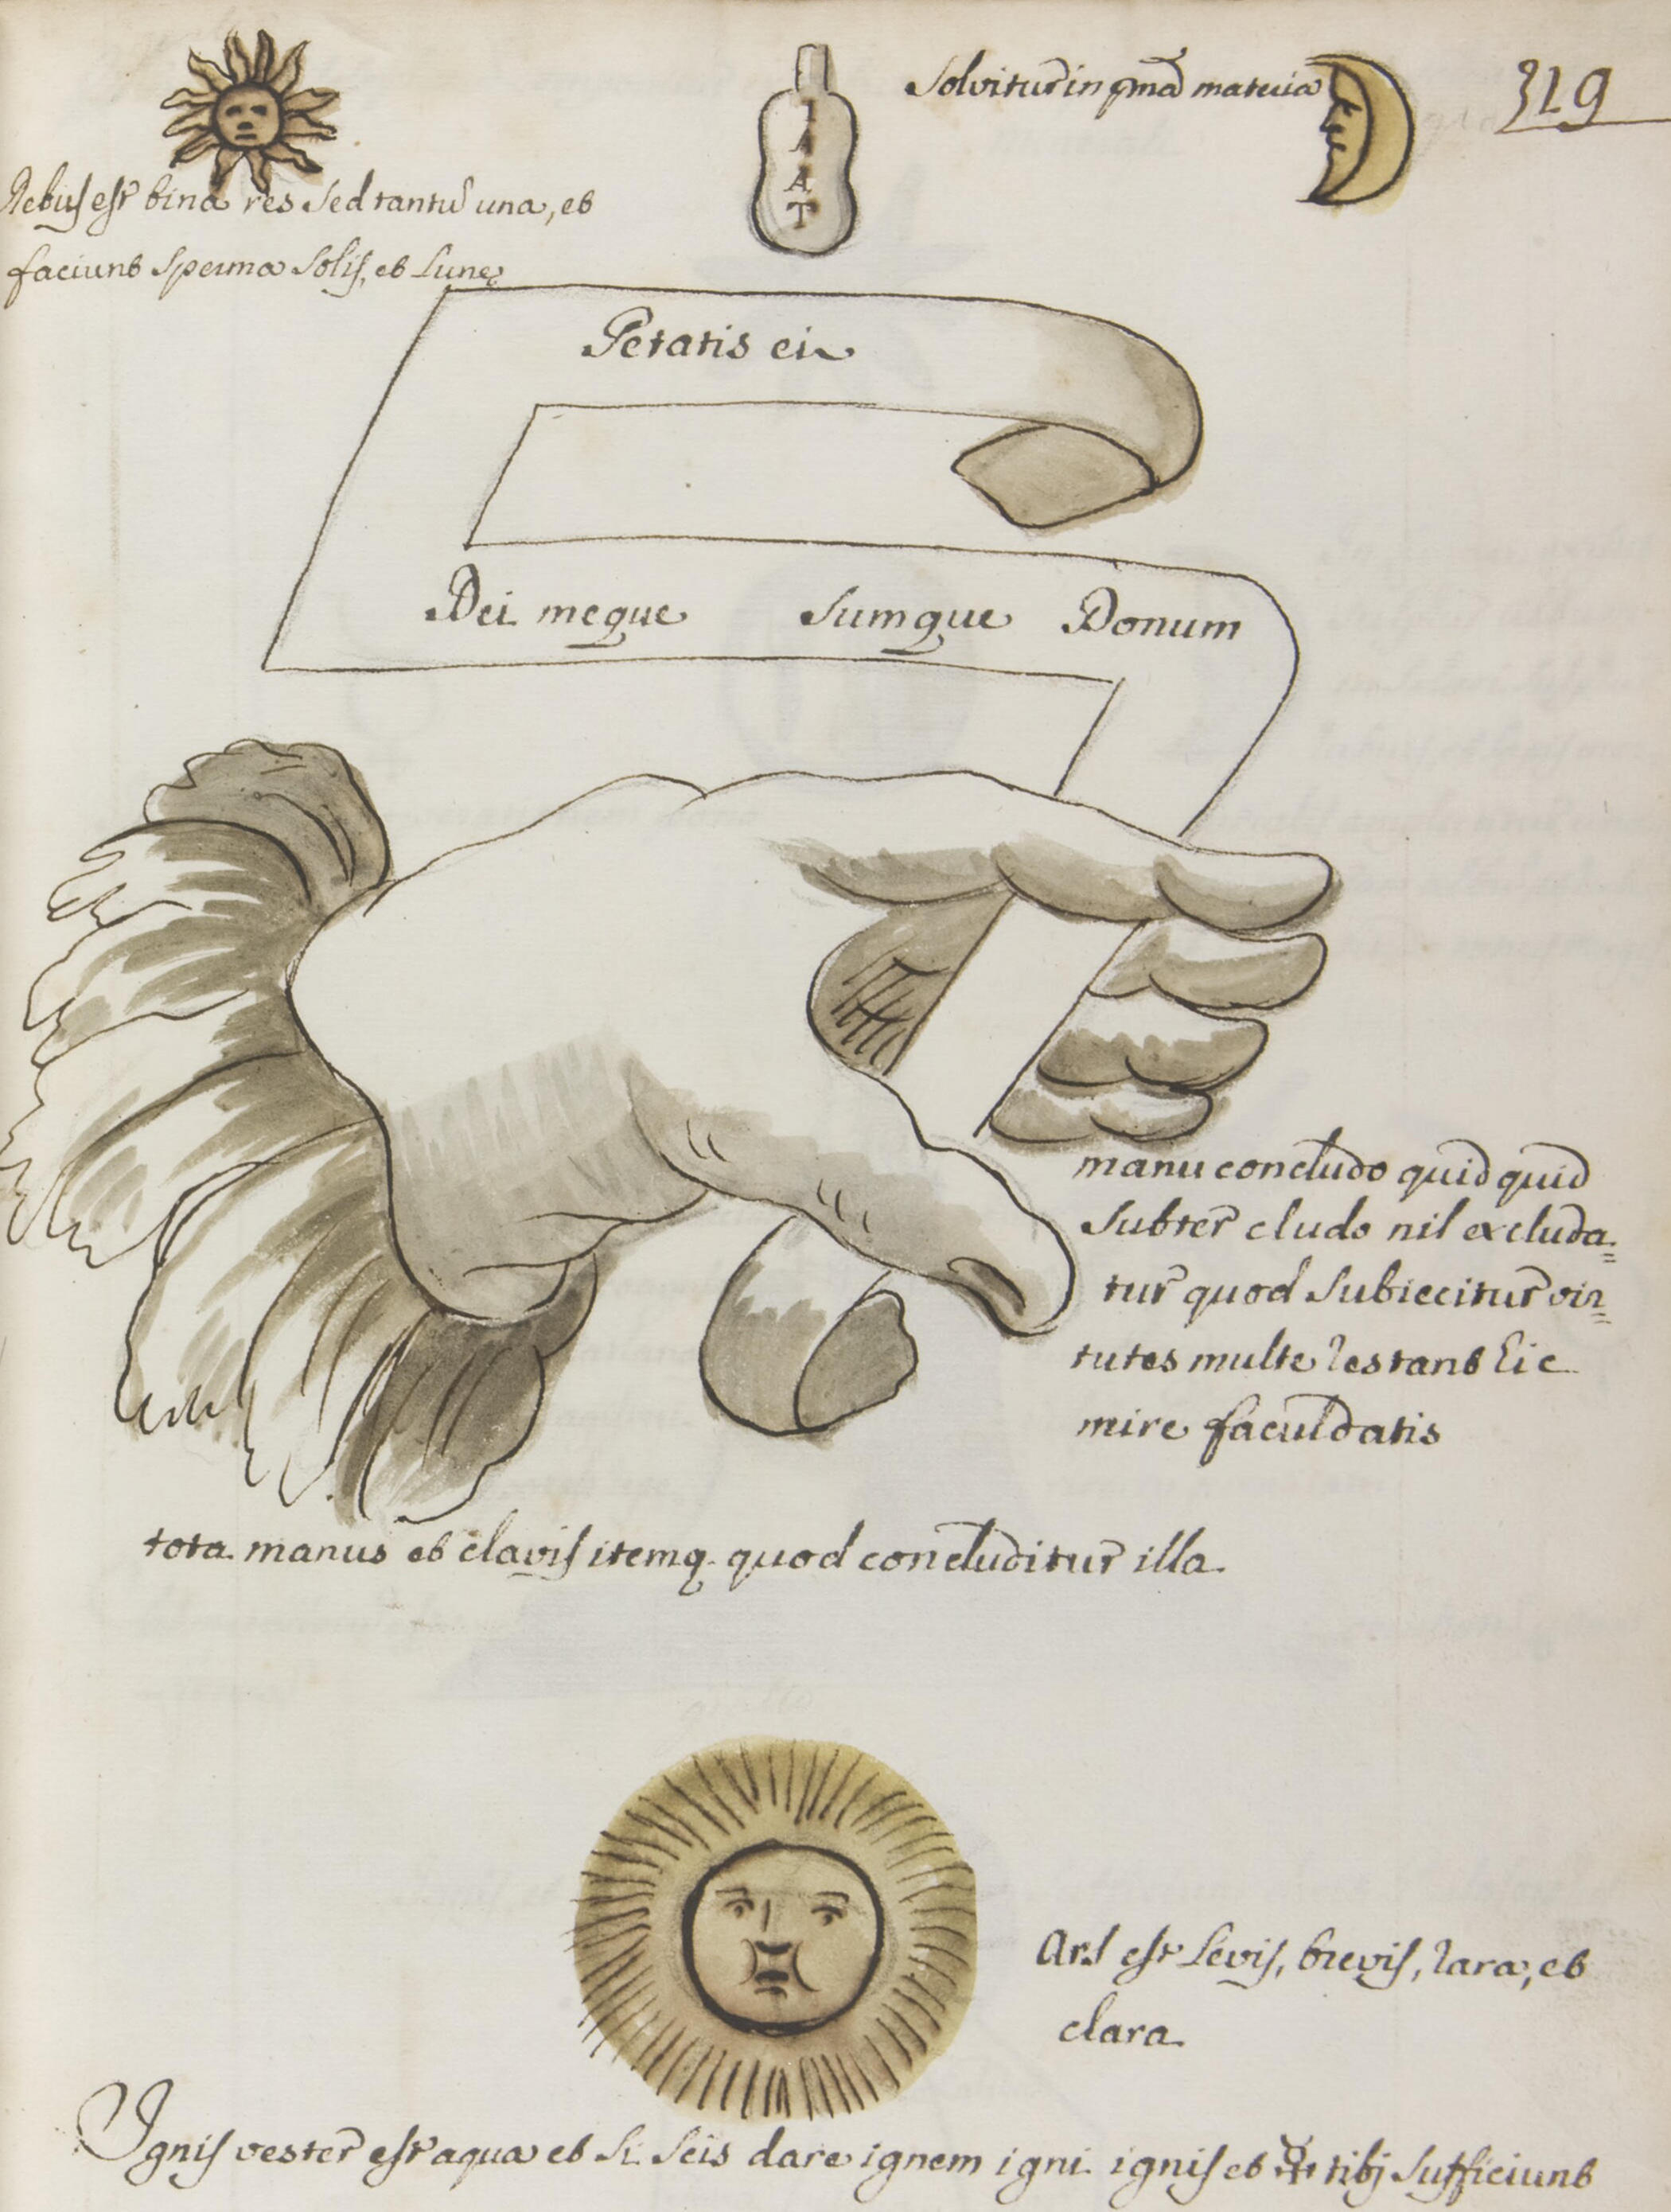 319
Solvitur in pma materia
I
A
A
T
Rebus est bina res sed tantu una, et
faciunt sperma solis, et Lunę
Petatis ei
Dei meque sumque Donum
manu concludo quid quid
subter cludo nil excluda=
tur quod subiecitur vir=
tutes multe restant hic
mire facultatis
tota manus et clavis itemq. quod concluditur illa.
Ars est levis, brevis, rara, et
clara.
Ignis vester est aqua et si scis dare ignem igni ignis et ☿ tibj sufficiunt